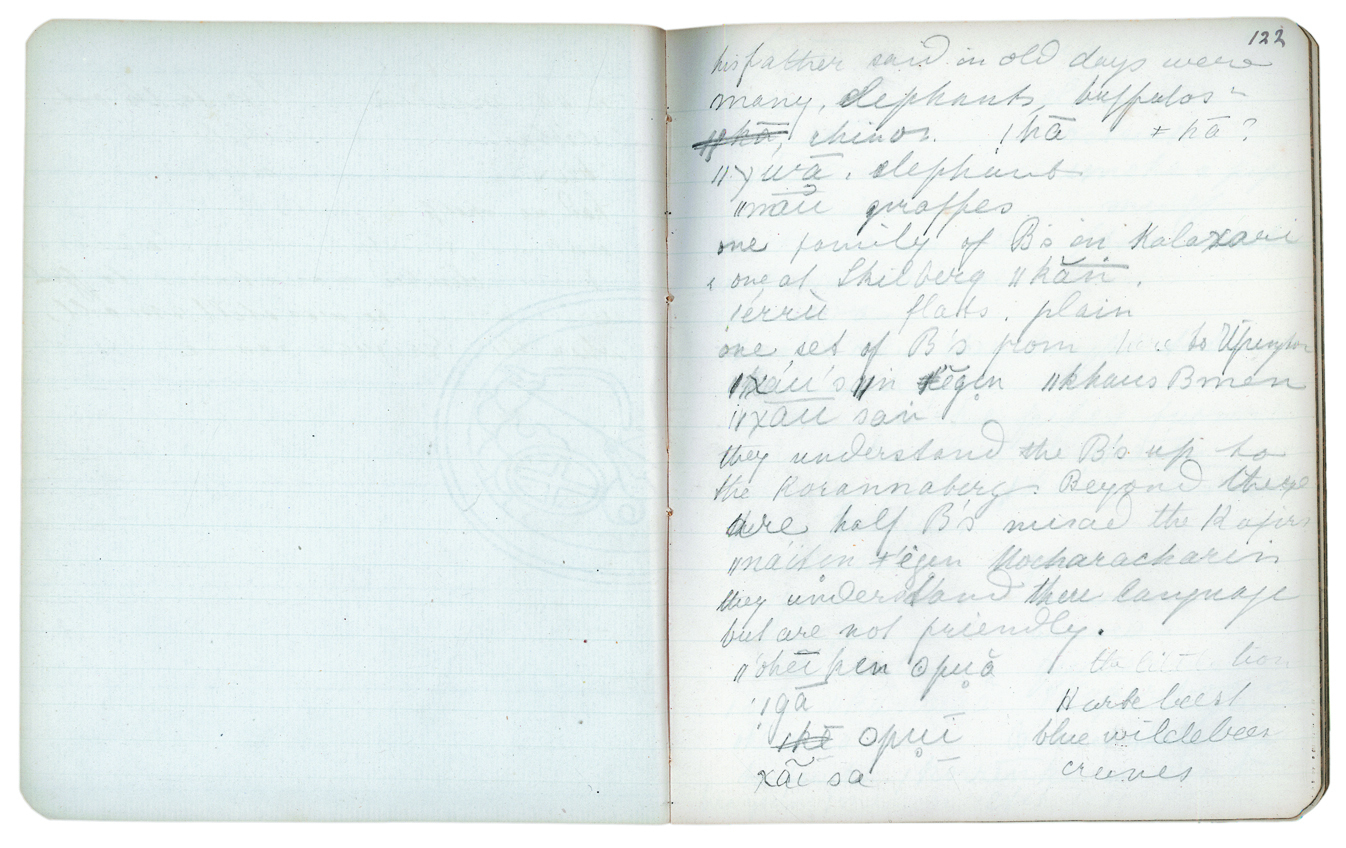 122
his father said in old days were
many, elephants, buffalos
ǁkā, rhinos. ǀhā ǂhā?
ǁχurā. elephants
ǁnāū giraffes
one family of B's in Kalaxari
one at Skilberg ǁkāń.
flats. plain
one set of B's from to Upington
ǁxāu's ǁin ǁkhaus Bmen
ǁχāu san
they understand the B's up to
the Korannaberg. Beyond there
are half B's mixed the Kafirs
ǁnāisin ǂēgen Mocharacharin
they understand there language
but are not friendly.
the little lion
ǃgā Hartebeest
blue wildebees
xāī sa